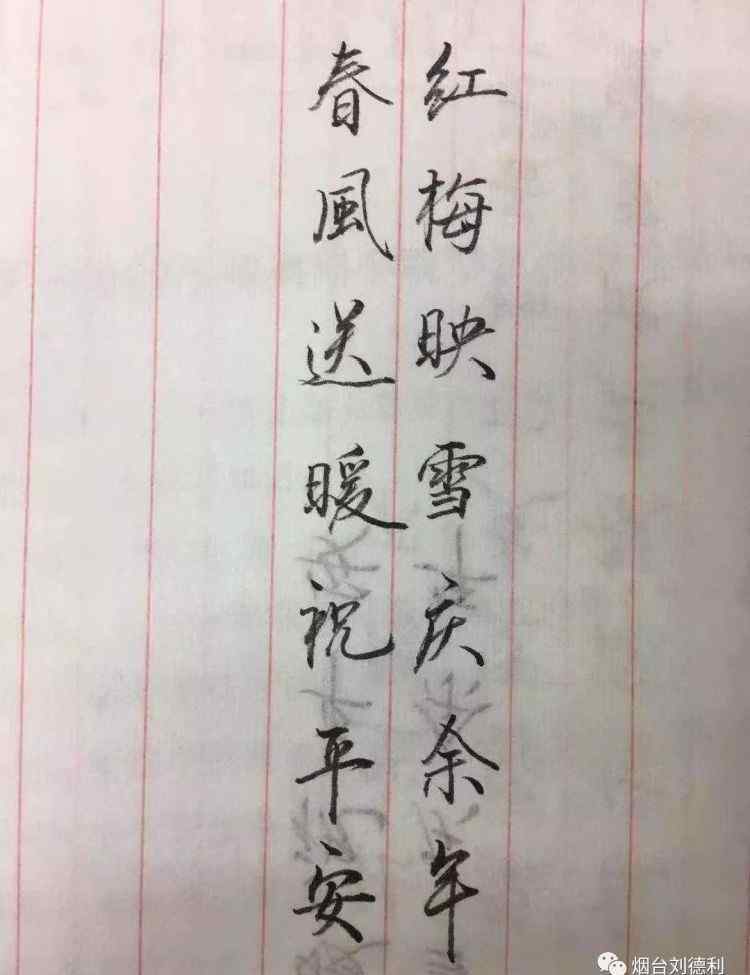 红梅映雪庆余年
春風送暖祝平安
烟台刘德利